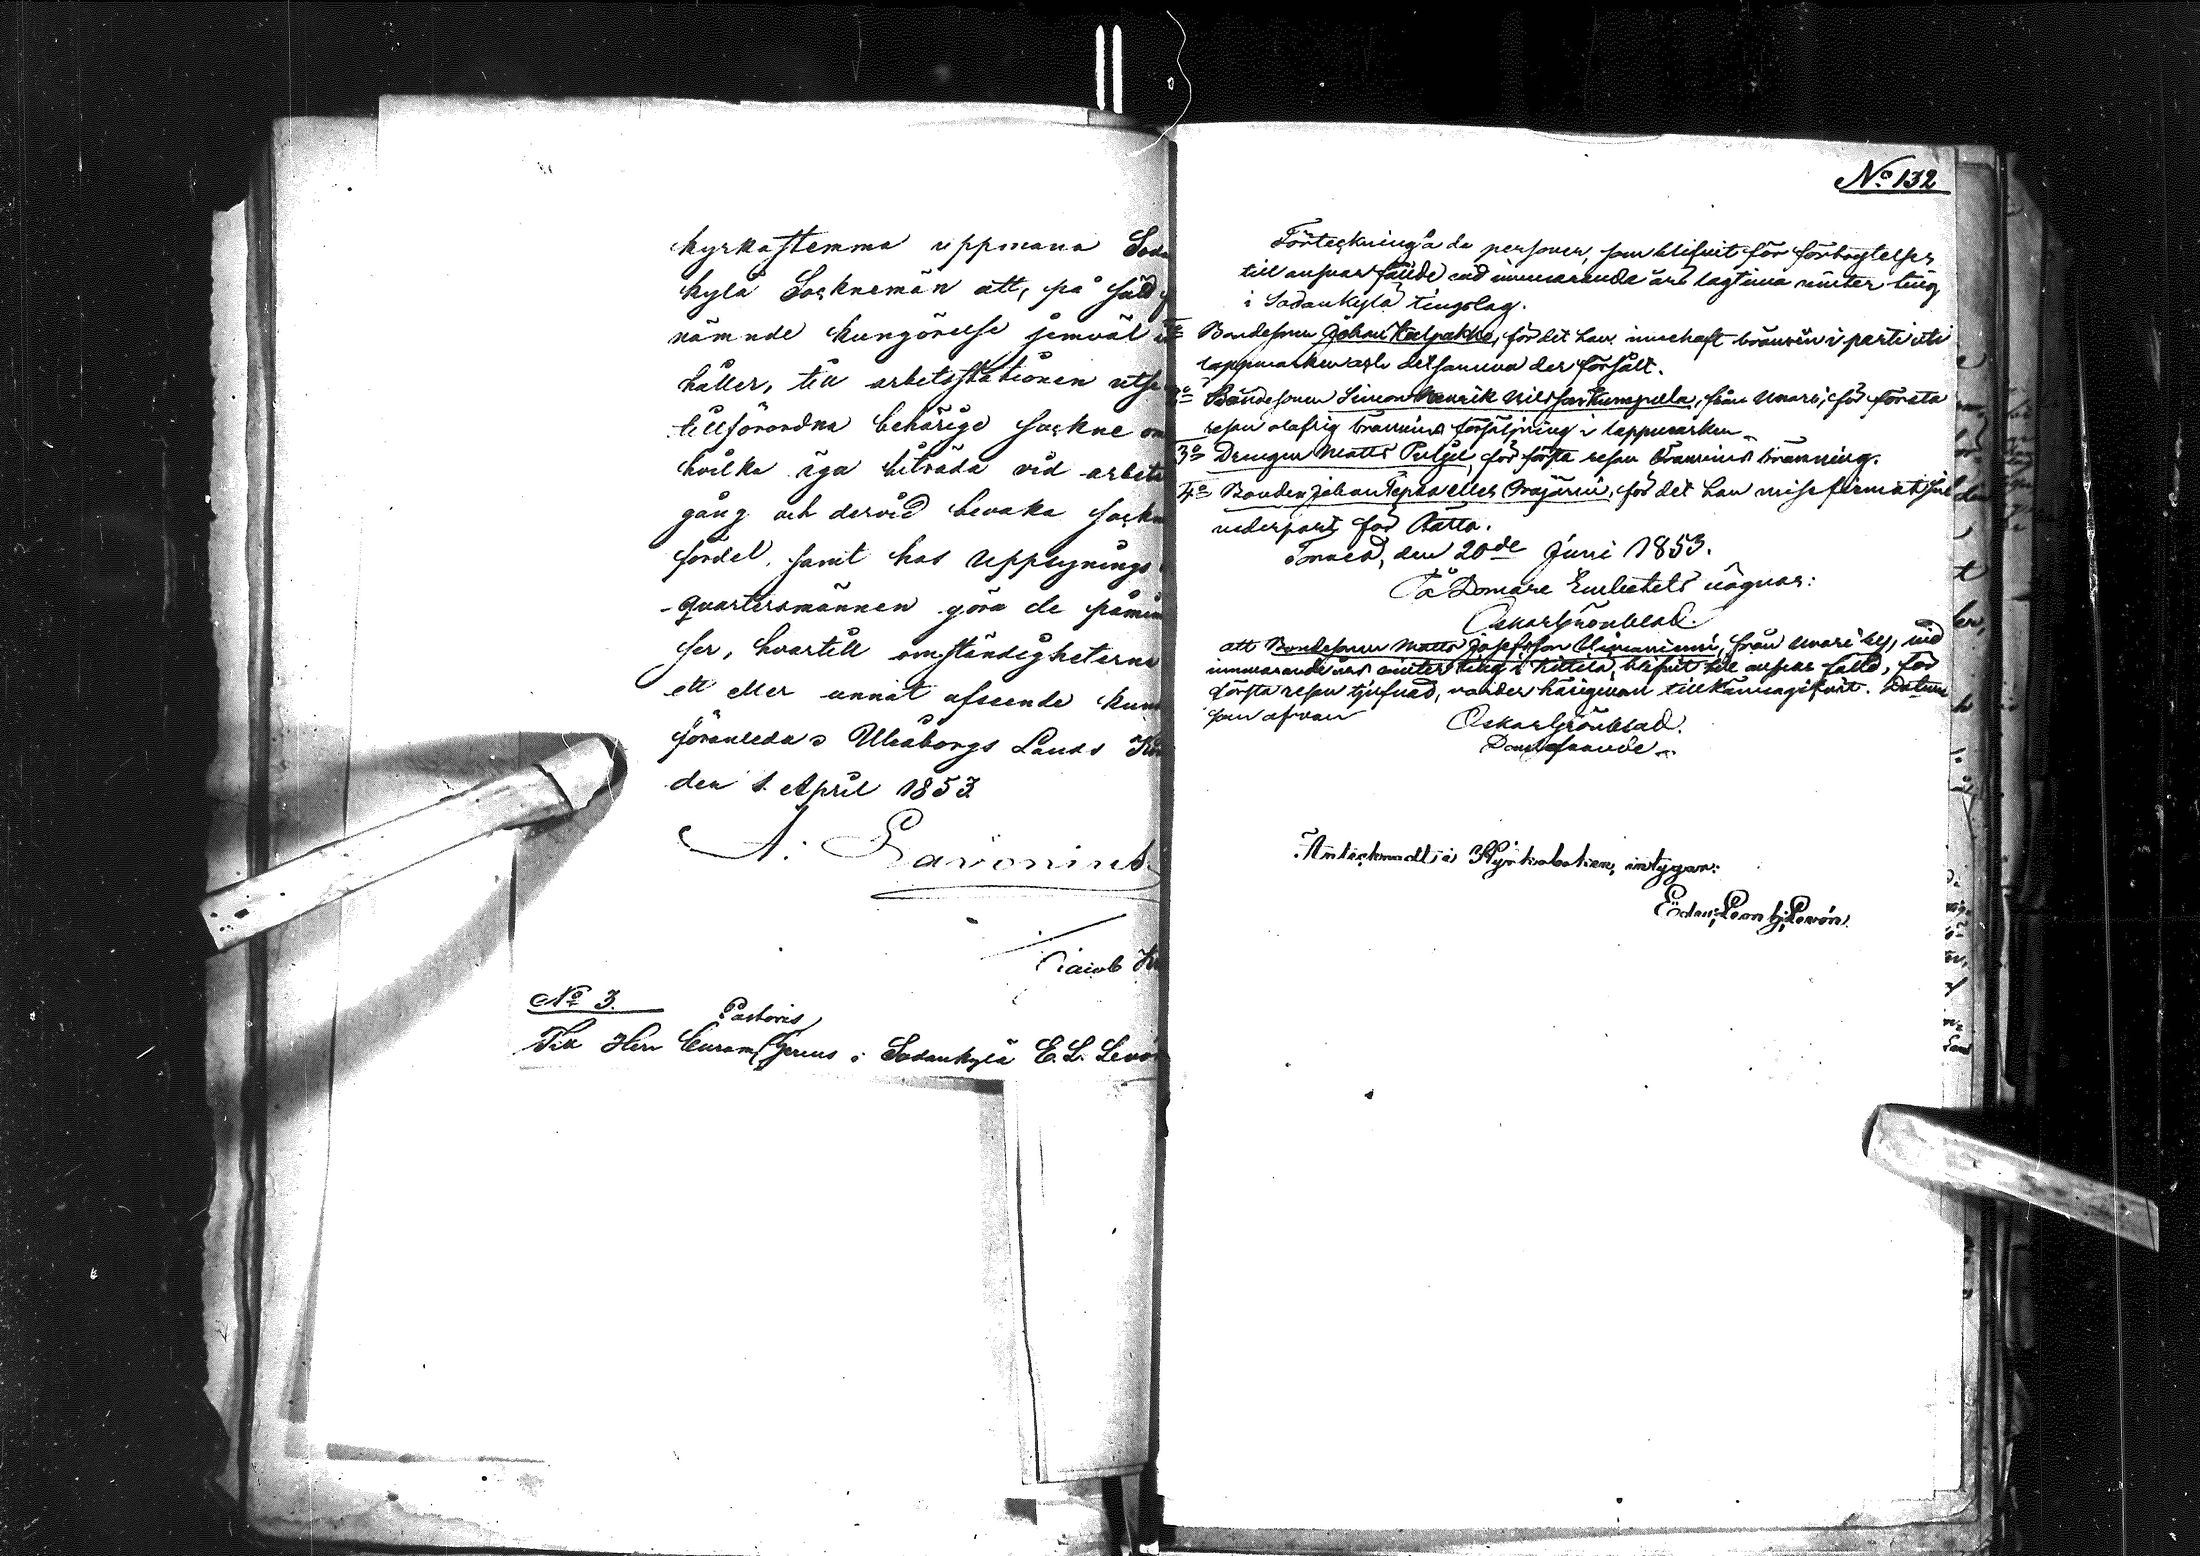 kyrkostemma uppmana Soda
kylä Socknemän att, på sätt
nämnde kungörelse jemväl
håller, till arbetsstationen utse
tillförordna behörige Sockne om
hvilka äga biträda vid arbets
gång och dervid bevaka Sockn
fördel, samt hos Uppsynings
-quartersmännen göra de påmin
ser, hvartill omständigheterne
ett eller annat afseende kun
föranleda. Uleåborgs Lands
den 1. April 1853.
A: Lavonius.
Jacob
No 3.
Pastoris
Till Herr Curam Gerens i Sodankylä E. L. Levón
No 132
Förteckning å de personer, som blifvit för förbrytelser
till ansvar fällde vid innevarande års lagtima vinter ting
i Sodankylä tingslag.
Bondesonen Johan Kulpakko, för det han innehaft bränvin i parti uti
lappmarken och detsamma der försålt.
2o Bondesonen Simon Henrik Nilsson Kumpula, från Unari, för första
resan olaflig bränvins försäljning i lappmarken.
3o Drengen Matts Pulju, för första resan bränvins bränning.
4o Bonden Johan Äprä eller Orajärvi, för det han
vederpart för Rätta.
Torneå, den 20de Juni 1853.
På Domare Embetets vägnar:
Oskar Grönblad.
att Bondesonen Matts Josefsson Ylivaaniemi, från Unari by, vid
innevarande års vinter ting i Kittilä, blifvit till ansvar fälld, för
första resan tjufnad, varder härigenom tillkännagifvit. Datum
som ofvan
Oskar Grönblad.
Domhafvande.
Antecknadt i Kyrkoboken, intygar:
Erdm: Leonh: Levón.